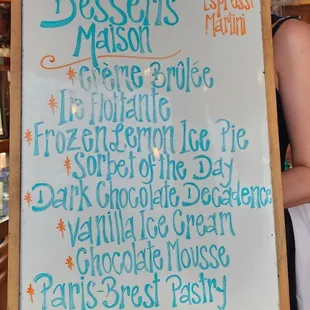 Desserts
Maison
Espresso
Martini
* Crème Brûlée
* Ile Flottante
* Frozen Lemon Ice Pie
* Sorbet of the Day
* Dark Chocolate Decadence
* Vanilla Ice Cream
* Chocolate Mousse
* Paris-Brest Pastry